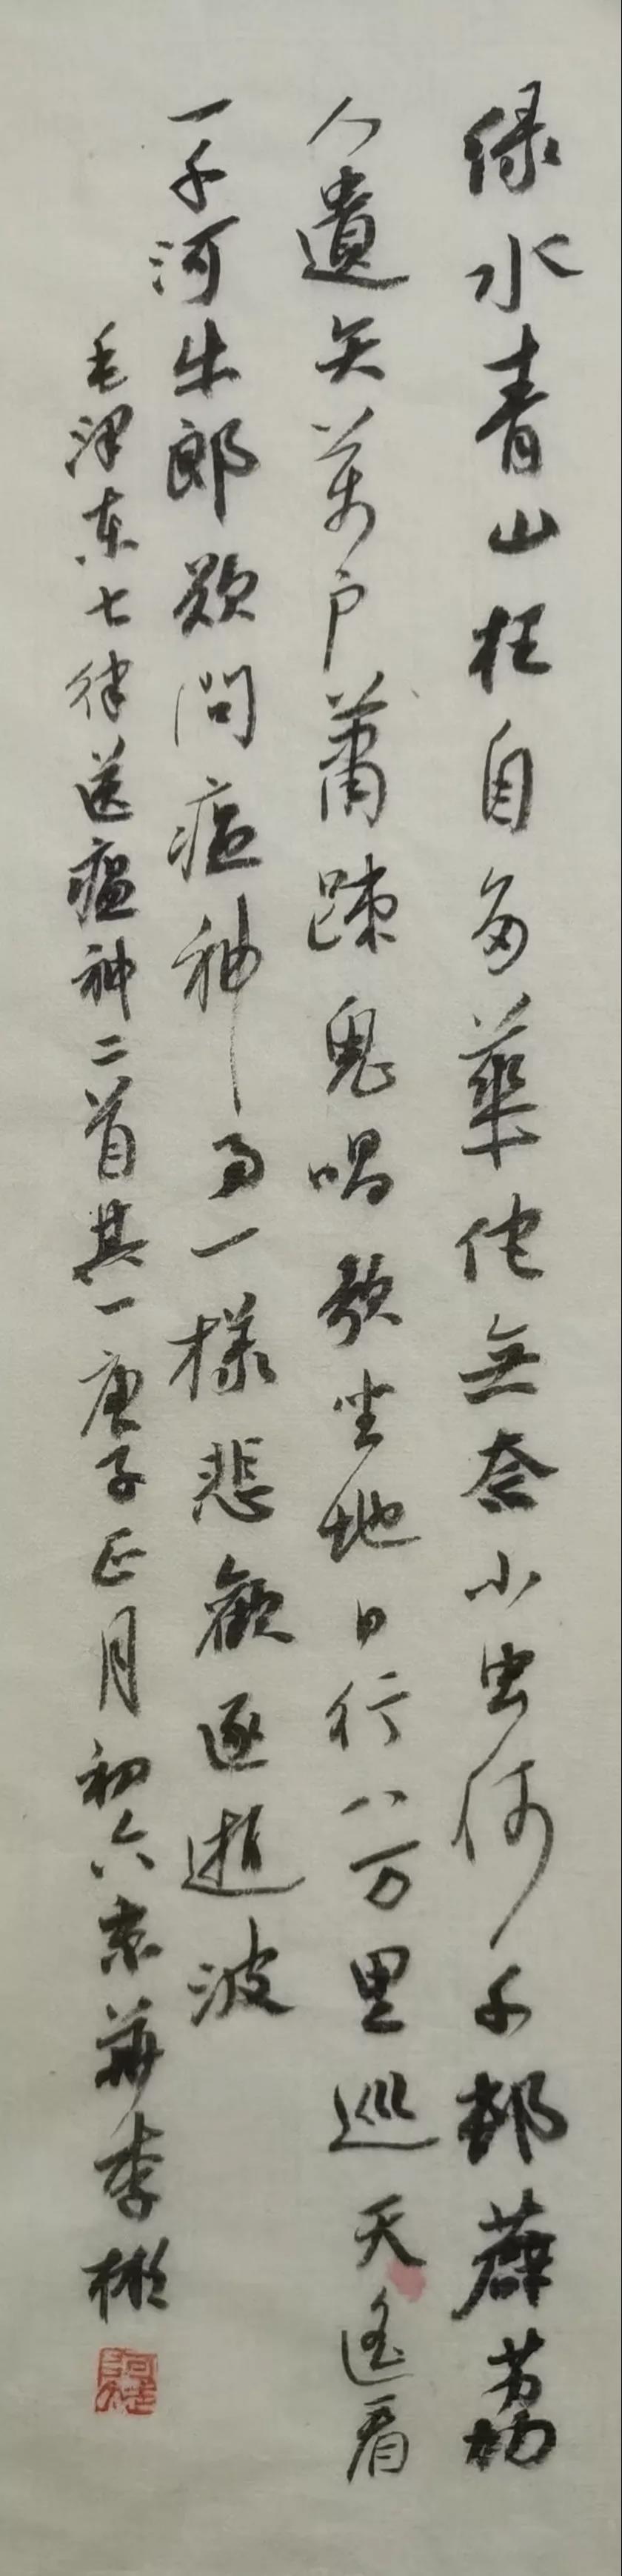 绿水青山枉自多華佗無奈小虫何千邨薜荔
人遺矢萬户萧踈鬼唱歌坐地日行八万里巡天遥看
一千河牛郎欲問瘟神事一樣悲歡逐逝波
毛泽东七律送瘟神二首其一庚子正月初六京華李彬